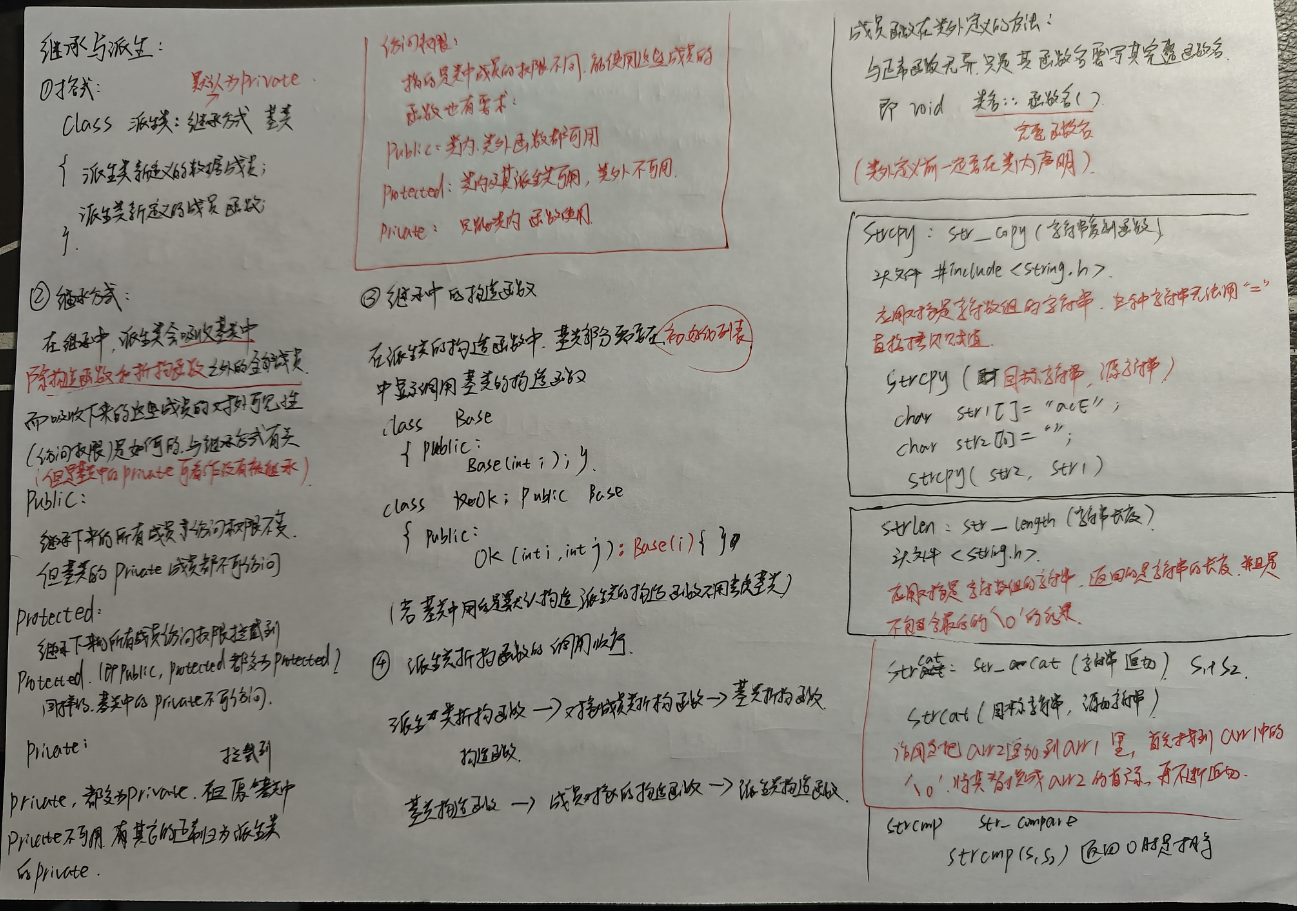 继承与派生：
①格式：
默认为private.
class 派生类：继承方式 基类
{ 派生类新定义的数据成员；
派生类新定义的成员函数；
}.
②继承方式：
在继承中，派生类会吸收基类中
除构造函数和析构函数之外的全部成员.
而吸收下来的这些成员的对外可见性
(访问权限)是如何的，与继承方式有关
(但是基类中的private可看作没有被继承)
Public：
继承下来的所有成员享访问权限不变.
但基类的private成员都不可访问
Protected：
继承下来的所有成员访问权限拉低到
Protected. (即public, protected都变为protected)
同样的，基类中的private不可访问.
Private：
拉低到
private, 都变为private. 但原基类中
private不可用. 有其它的还剩归为派生类
的private.
访问权限：
指的是类中成员的权限不同. 能使用这些成员的
函数也有要求：
Public：类内、类外函数都可用
Protected：类内及其派生类可用，类外不可用.
Private：只能类内函数使用.
③继承中的构造函数
在派生类的构造函数中，基类部分要在初始化列表
中显示调用基类的构造函数
class Base
{ public：
Base(int i); }.
class OK: public Base
{ public：
OK (int i, int j)：Base(i) { }
(若基类中用的是默认构造 派生类的构造函数不用负责基类)
④ 派生类析构函数的调用顺序.
派生类析构函数→对象成员类析构函数→基类析构函数.
构造函数.
基类构造函数→成员对象的构造函数→派生类构造函数.
成员函数在类外定义的方法：
与正常函数无异，只是其函数名要写其完整函数名.
即 void 类名::函数名( ).
完整函数名
(类外定义前一定要在类内声明).
strcpy：str_copy (字符串复制函数)
头文件 #include <string.h>.
应用对象是字符数组的字符串. 且种字符串无法用"="
直接拷贝赋值.
strcpy (目标字符串，源字符串)
char str1[]= "acE"；
char str2[0]= ""；
strcpy( str2, str1)
strlen：str_length (字符串长度).
头文件 <string.h>.
应用对象是字符数组的字符串，返回的是字符串的长度，并且是
不包含最后的'\0'的结果.
strcat：str_cat (字符串追加) S1+S2
strcat (目标字符串，源字符串)
作用是把arr2追加到arr1里，首先找到arr1中的
'\0'，将其替换成arr2的首元素，再不断追加.
strcmp str_compare
strcmp(S1,S2) 返回0时是相等